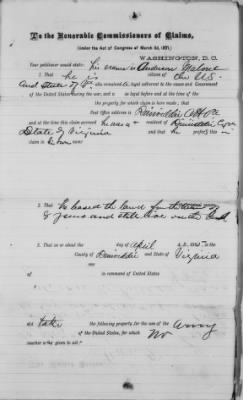 To the Honorable Commissioners of Claims,
(Under the Act of Congress of March 3d, 1871.)
WASHINGTON, D. C.
Your petitioner would state: his name is Andrew Malone
1. That he is citizen of the U.S.
and State of Va. who remained a loyal adherent to the cause and Government
of the United States during the war, and is so loyal before and at the time of the
the property for which claim is here made; that
Post Office address is Dinwiddie C.H. Va
and at the time this claim accrued he was a resident of Dinwiddie Co
State of Virginia and that he prefers this
claim in own
2. That he leased the land for
8 years and still live on the land
3. That on or about the day of April A. D., 186
County of Dinwiddie and State of Virginia
of in command of United States
did take the following property for the use of the Army
of the United States, for which no
voucher is was given to wit: